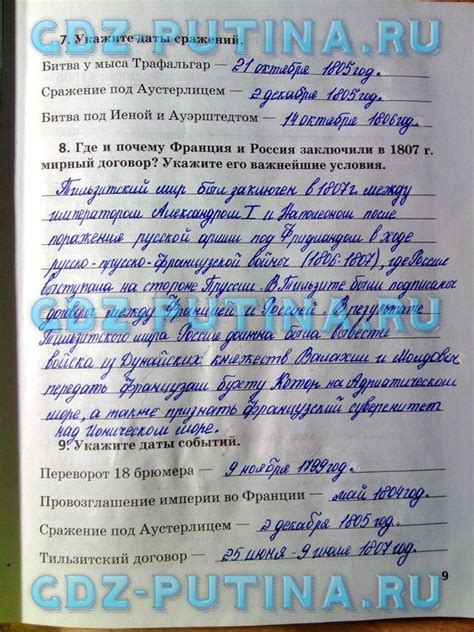 GDZ-PUTINA.RU
7. Укажите даты сражений.
Битва у мыса Трафальгар — 21 октября 1805 год.
Сражение под Аустерлицем — 2 декабря 1805 год.
Битва под Иеной и Ауэрштедтом — 14 октября 1806 год.
8. Где и почему Франция и Россия заключили в 1807 г.
мирный договор? Укажите его важнейшие условия.
Тильзитский мир был заключен в 1807г. между
императором Александром I и Наполеоном после
поражения русской армии под Фридландом в ходе
русско-прусско-французской войны (1806-1807), где Россия
выступала на стороне Пруссии. В Тильзите были подписаны
договоры между Францией и Россией. В результате
GDZ-PUTINA.RU
Тильзитского мира Россия должна была вывести
войска из Дунайских княжеств Валахии и Молдовы
передать французам бухту Котор на Адриатическом
море, а также признать французский суверенитет
над Ионическом море.
9. Укажите даты событий.
Переворот 18 брюмера — 9 ноября 1799 год.
Провозглашение империи во Франции — май 1804год.
Сражение под Аустерлицем — 2 декабря 1805 год.
Тильзитский договор — 25 июня - 9 июля 1807 год.
9
GDZ-PUTINA.RU